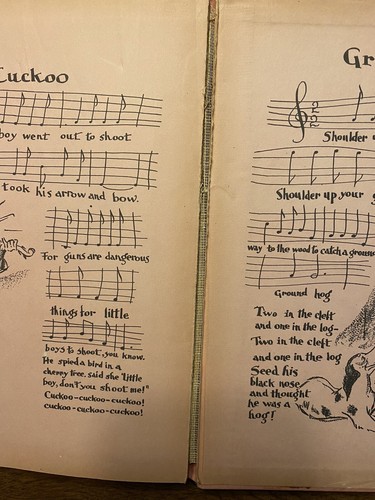 Cuckoo
boy went out to shoot
took his arrow and bow.
For guns are dangerous
things for little
boys to shoot, you know.
He spied a bird in a
cherry tree, said she "little
boy, don't you shoot me!"
Cuckoo-cuckoo-cuckoo!
cuckoo-cuckoo-cuckoo!
Gr
2
2
Shoulder
Shoulder up your
way to the wood to catch a ground
Ground hog
Two in the cleft
and one in the log-
Two in the cleft
and one in the log
Seed his
black nose
and thought
he was a
hog!